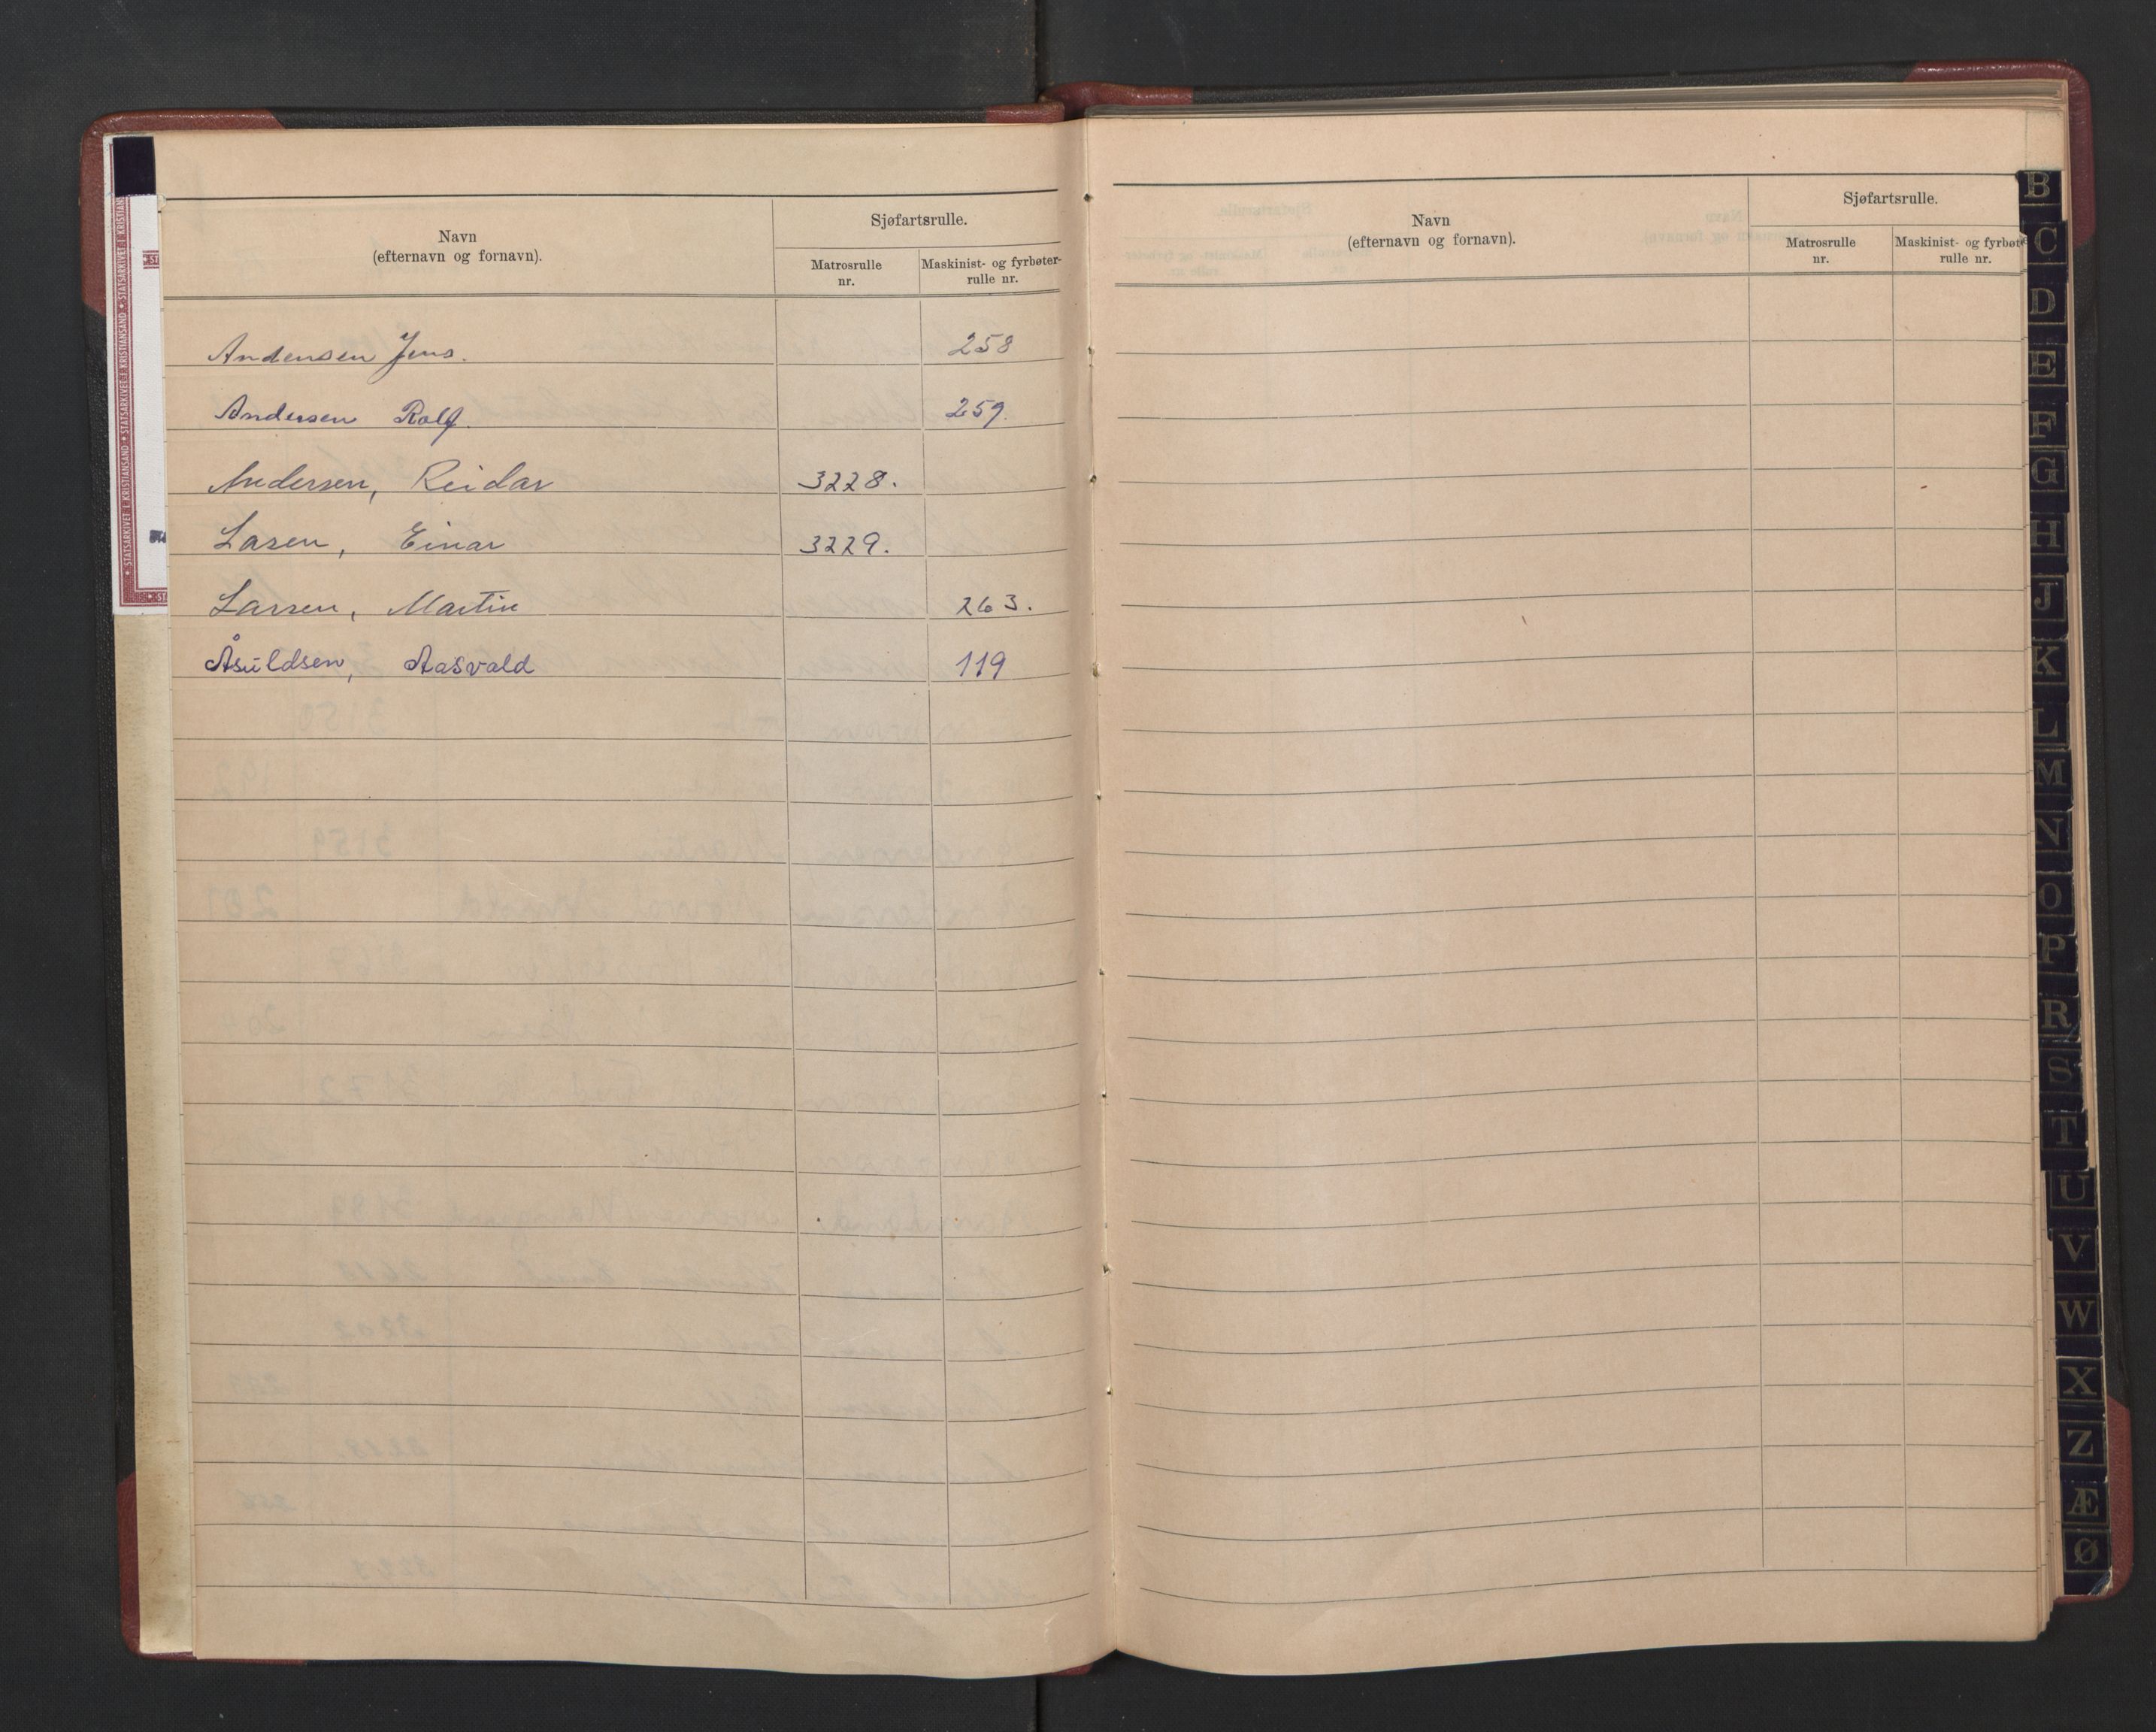 Navn
(efternavn og fornavn).
Sjøfartsrulle.
Matrosrulle
nr.
Maskinist- og fyrbøter-
rulle nr.
Andensen Jens. 258
Andersen Rolf. 259.
Andersen, Reidar 3228.
Lasen, Einar 3229.
Larsen, Martin 263.
Åsuldsen, Aasvald 119
STATSARKIVET I KRISTIANSAND
Navn
(efternavn og fornavn).
Sjøfartsrulle.
Matrosrulle
nr.
Maskinist- og fyrbøte
rulle nr.
B
C
D
E
F
G
H
J
K
L
M
N
O
P
R
S
T
U
V
W
X
Z
Æ
Ø